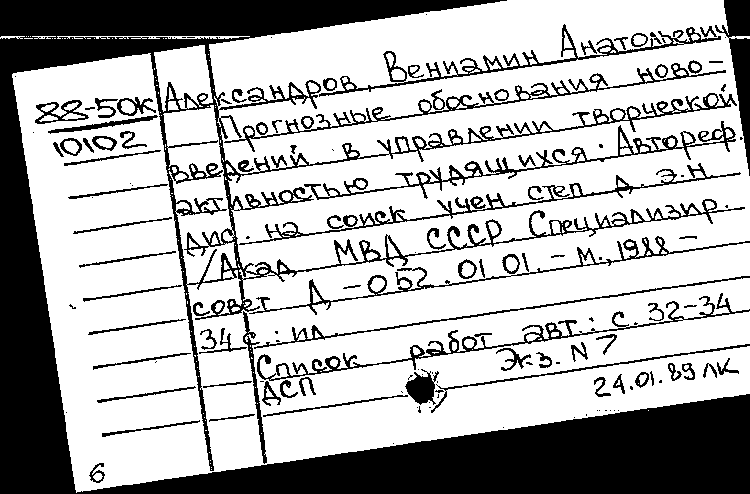 88-50к Александров, Вениамин Анатольевич
10102 Прогнозные обоснования ново-
введений в управлении творческой
активностью трудящихся: Автореф.
дис. на соиск учен. степ д. э.н
/Акад МВД СССР. Специализир.
совет Д-052.01 01. - М., 1988 -
34 с.: ил.
Список работ авт.: с. 32-34
ДСП Экз. N 7
24.01.89 ЛК
6